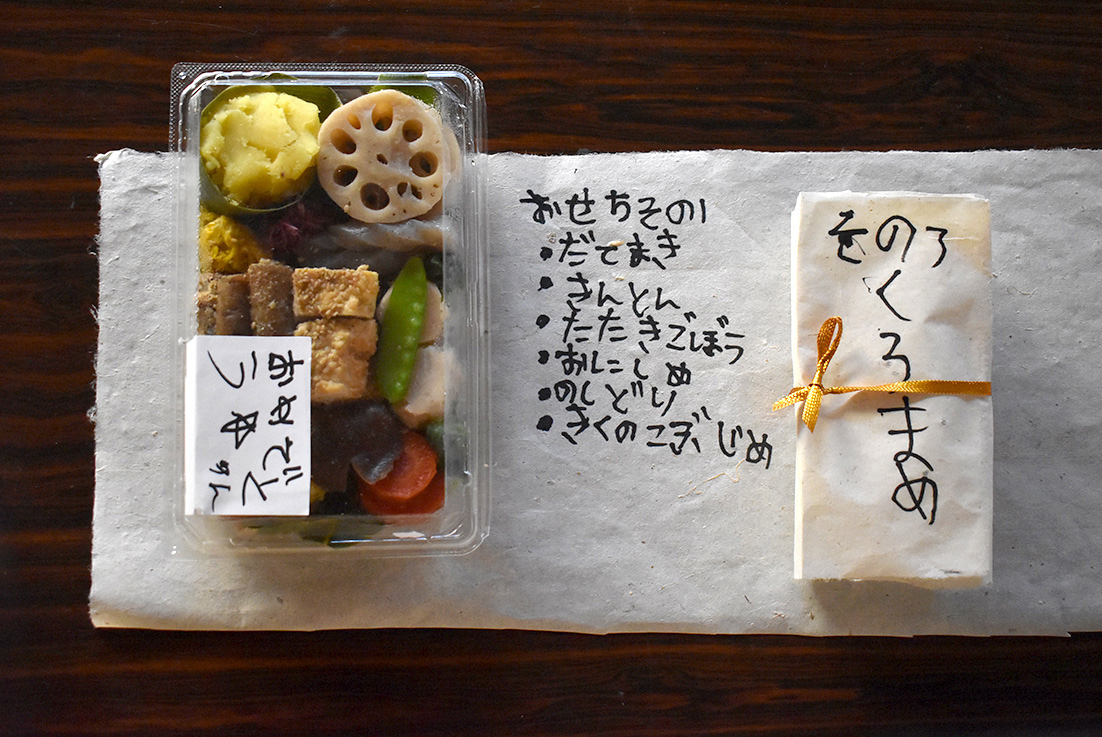 おめでと
う
おせちその1
・だてまき
・きんとん
・たたきごぼう
・おにしめ
・のしどり
・きくのこぶじめ
その3
くろまめ